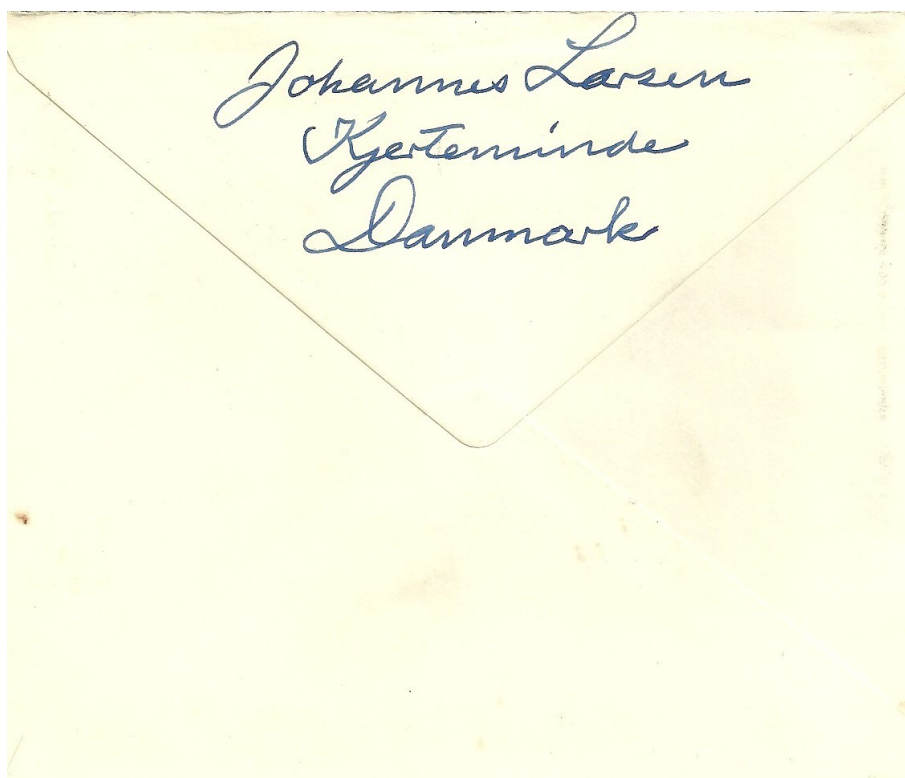 Johannes Larsen
Kjerteminde
Danmark